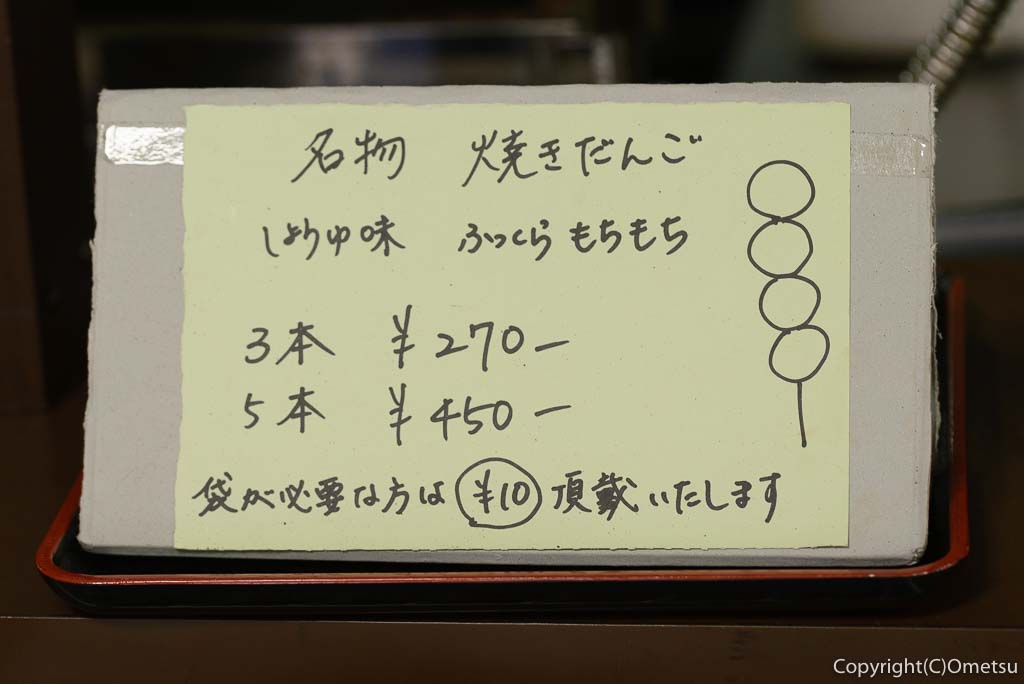 名物 焼きだんご
しょうゆ味 ふっくらもちもち
3本 ¥270-
5本 ¥450-
袋が必要な方は ¥10 頂戴いたします
Copyright(C)Ometsu